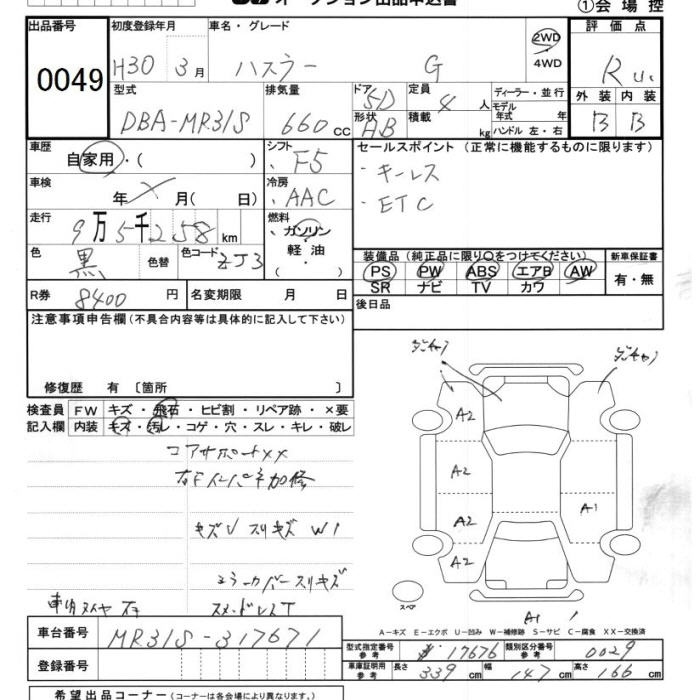 ①会場控
出品番号 0049
初度登録年月 H30 3月
車名・グレード ハスラー G
2WD
4WD
評価点 R
外装 内装
B B
型式 DBA-MR31S
排気量 660cc
ドア 5D
形状 AB
定員 4人
積載 kg
ディーラー・並行
モデル年式 年
ハンドル 左・右
車歴 自家用・( )
シフト ・F5
車検 年 月( 日)
冷房 ・AAC
走行 9万5千258km
燃料 ・ガソリン
軽油
・( )
色 黒
色替
色コード ZJ3
R券 8400円
名変期限 月 日
セールスポイント(正常に機能するものに限ります)
・キーレス
・ETC
装備品(純正品に限り○をつけてください)
PS PW ABS エアB AW
SR ナビ TV カワ
新車保証書
有・無
後日品
注意事項申告欄(不具合内容等は具体的に記入して下さい)
修復歴 有 〔箇所 〕
検査員 FW キズ・飛石・ヒビ割・リペア跡・×要
記入欄 内装 キズ・汚レ・コゲ・穴・スレ・キレ・破レ
コアサポートXX
キズUスリキズ W1
ミラーカバースリキズ
A2
A2
A2
A2
A1
A1
スペア
A-キズ E-エクボ U-凹み W-補修跡 S-サビ C-腐食 XX-交換済
車台番号 MR31S-317671
登録番号
型式指定番号 参考 17676
類別区分番号 参考 0029
車庫証明用 参考 長さ 339cm 幅 147cm 高さ 166cm
希望出品コーナー(コーナーは各会場により異なります。)